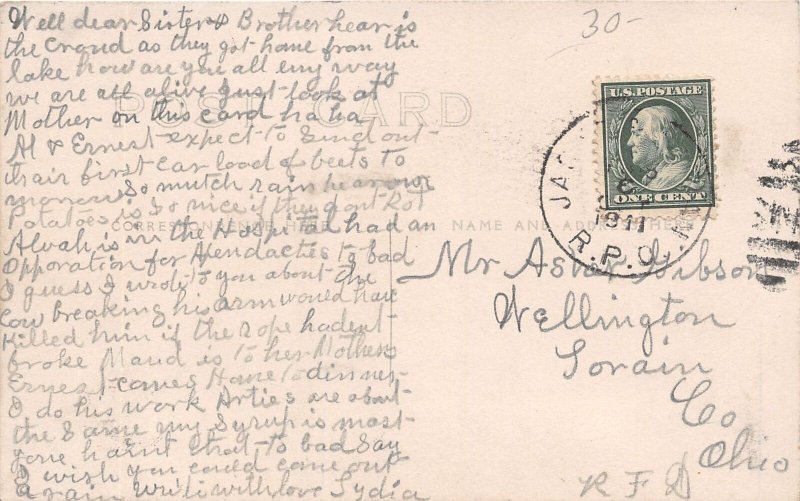 Well dear Sister & Brother hear is
the Croud as they got home from the
lake how are you all eny way
we are all alive just look at
Mother on this card ha ha
Al & Ernest expect to Send out
thair first car load of beets to
morrow So mutch rain hear our
Potatoes is So nice if they dont Rot
Alvah is in the Hospital had an
Opporation for Apendacties to bad
I guess I wrote to you about the
Cow breaking his arm would have
Killed him if the rope hadent
broke Maud is to her Mothers
Ernest comes Home to dinner
I do his work Arties are about
the Same my Syrup is most
gone haint that to bad Say
I wish you could come out
again with love Lydia
30-
POST CARD
CORRESPONDENCE HERE
NAME AND ADDRESS HERE
U.S. POSTAGE
ONE CENT
JAC
1911
R.P.O.
Mr Gibson
Wellington
Lorain
Co
Ohio
R F D